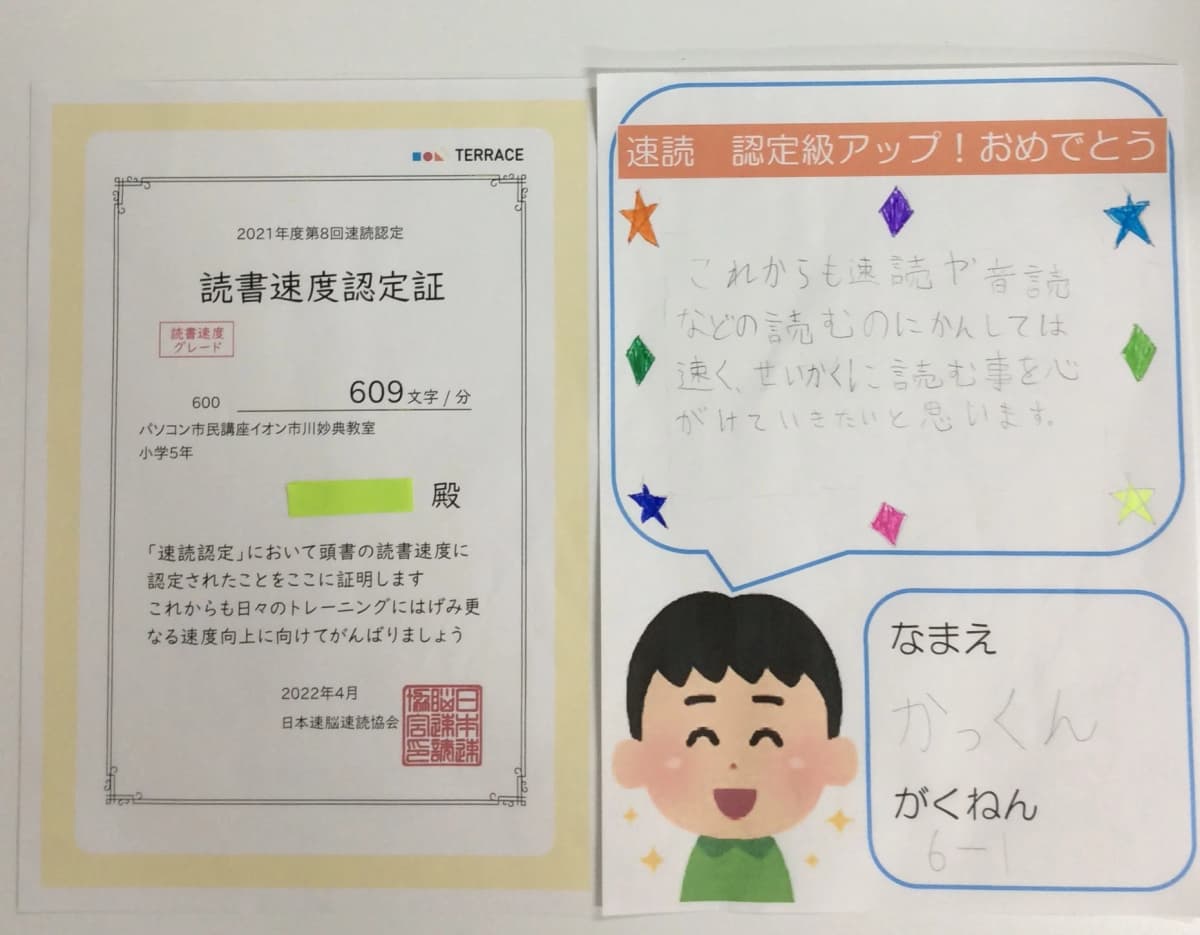 TERRACE
2021年度第8回速読認定
読書速度認定証
読書速度
グレード
600
609文字/分
パソコン市民講座イオン市川妙典教室
小学5年
殿
「速読認定」において頭書の読書速度に
認定されたことをここに証明します
これからも日々のトレーニングにはげみ更
なる速度向上に向けてがんばりましょう
2022年4月
日本速脳速読協会
日本速
脳速読
協会印
速読 認定級アップ!おめでとう
これからも速読や音読
などの読むのにかんしては
速く、せいかくに読む事を心
がけていきたいと思います。
なまえ
かっくん
がくねん
6-1